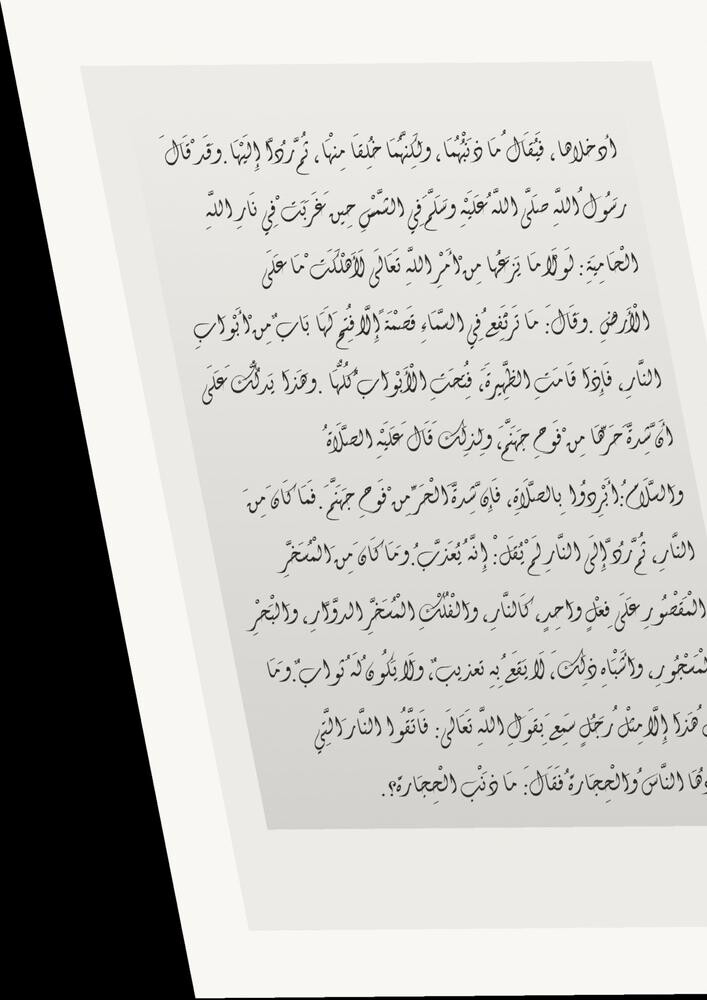 أدخلاها، فَيُقَالُ مَا ذَنْبُهُمَا، وَلَكِنَّهُمَا خُلِقَا مِنْهَا، ثُمَّ رُدَّا إِلَيْهَا. وَقَدْ قَالَ
رَسُولُ اللَّهِ صَلَّى اللَّهُ عَلَيْهِ وَسَلَّمَ فِي الشَّمْسِ حِينَ غَرَبَتْ فِي نَارِ اللَّهِ
الْحَامِيَةِ: لَوْلَا مَا يَزَعُهَا مِنْ أَمْرِ اللَّهِ تَعَالَى لَأَهْلَكَتْ مَا عَلَى
الْأَرْضِ. وَقَالَ: مَا تَرْتَفِعُ فِي السَّمَاءِ قَصْمَةً إِلَّا فُتِحَ لَهَا بَابٌ مِنْ أَبْوَابِ
النَّارِ، فَإِذَا قَامَتِ الظَّهِيرَةُ، فُتِحَتِ الْأَبْوَابُ كُلُّهَا. وَهَذَا يَدُلُّكَ عَلَى
أَنَّ شِدَّةَ حَرِّهَا مِنْ فَوْحِ جَهَنَّمَ، وَلِذَلِكَ قَالَ عَلَيْهِ الصَّلَاةُ
وَالسَّلَامُ: أَبْرِدُوا بِالصَّلَاةِ، فَإِنَّ شِدَّةَ الْحَرِّ مِنْ فَوْحِ جَهَنَّمَ. فَمَا كَانَ مِنَ
النَّارِ، ثُمَّ رُدَّ إِلَى النَّارِ لَمْ يُقَلْ: إِنَّهُ يُعَذَّبُ. وَمَا كَانَ مِنَ الْمُسَخَّرِ
الْمَقْصُورِ عَلَى فِعْلٍ وَاحِدٍ، كَالنَّارِ، وَالْفُلْكِ الْمُسَخَّرِ الدَّوَّارِ، وَالْبَحْرِ
الْمَسْجُورِ، وَأَشْبَاهِ ذَلِكَ، لَا يَقَعُ بِهِ تَعْذِيبٌ، وَلَا يَكُونُ لَهُ ثَوَابٌ. وَمَا
هَذَا إِلَّا مِثْلُ رَجُلٍ سَمِعَ بِقَوْلِ اللَّهِ تَعَالَى: فَاتَّقُوا النَّارَ الَّتِي
النَّاسُ وَالْحِجَارَةُ فَقَالَ: مَا ذَنْبُ الْحِجَارَةِ؟.